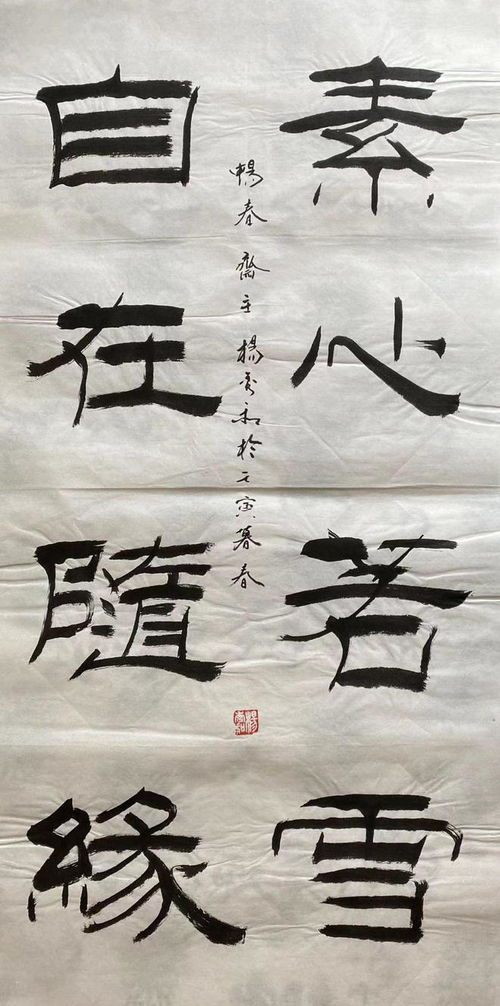 素心若雪
自在隨緣
暢春齋主楊秀和於壬寅暮春